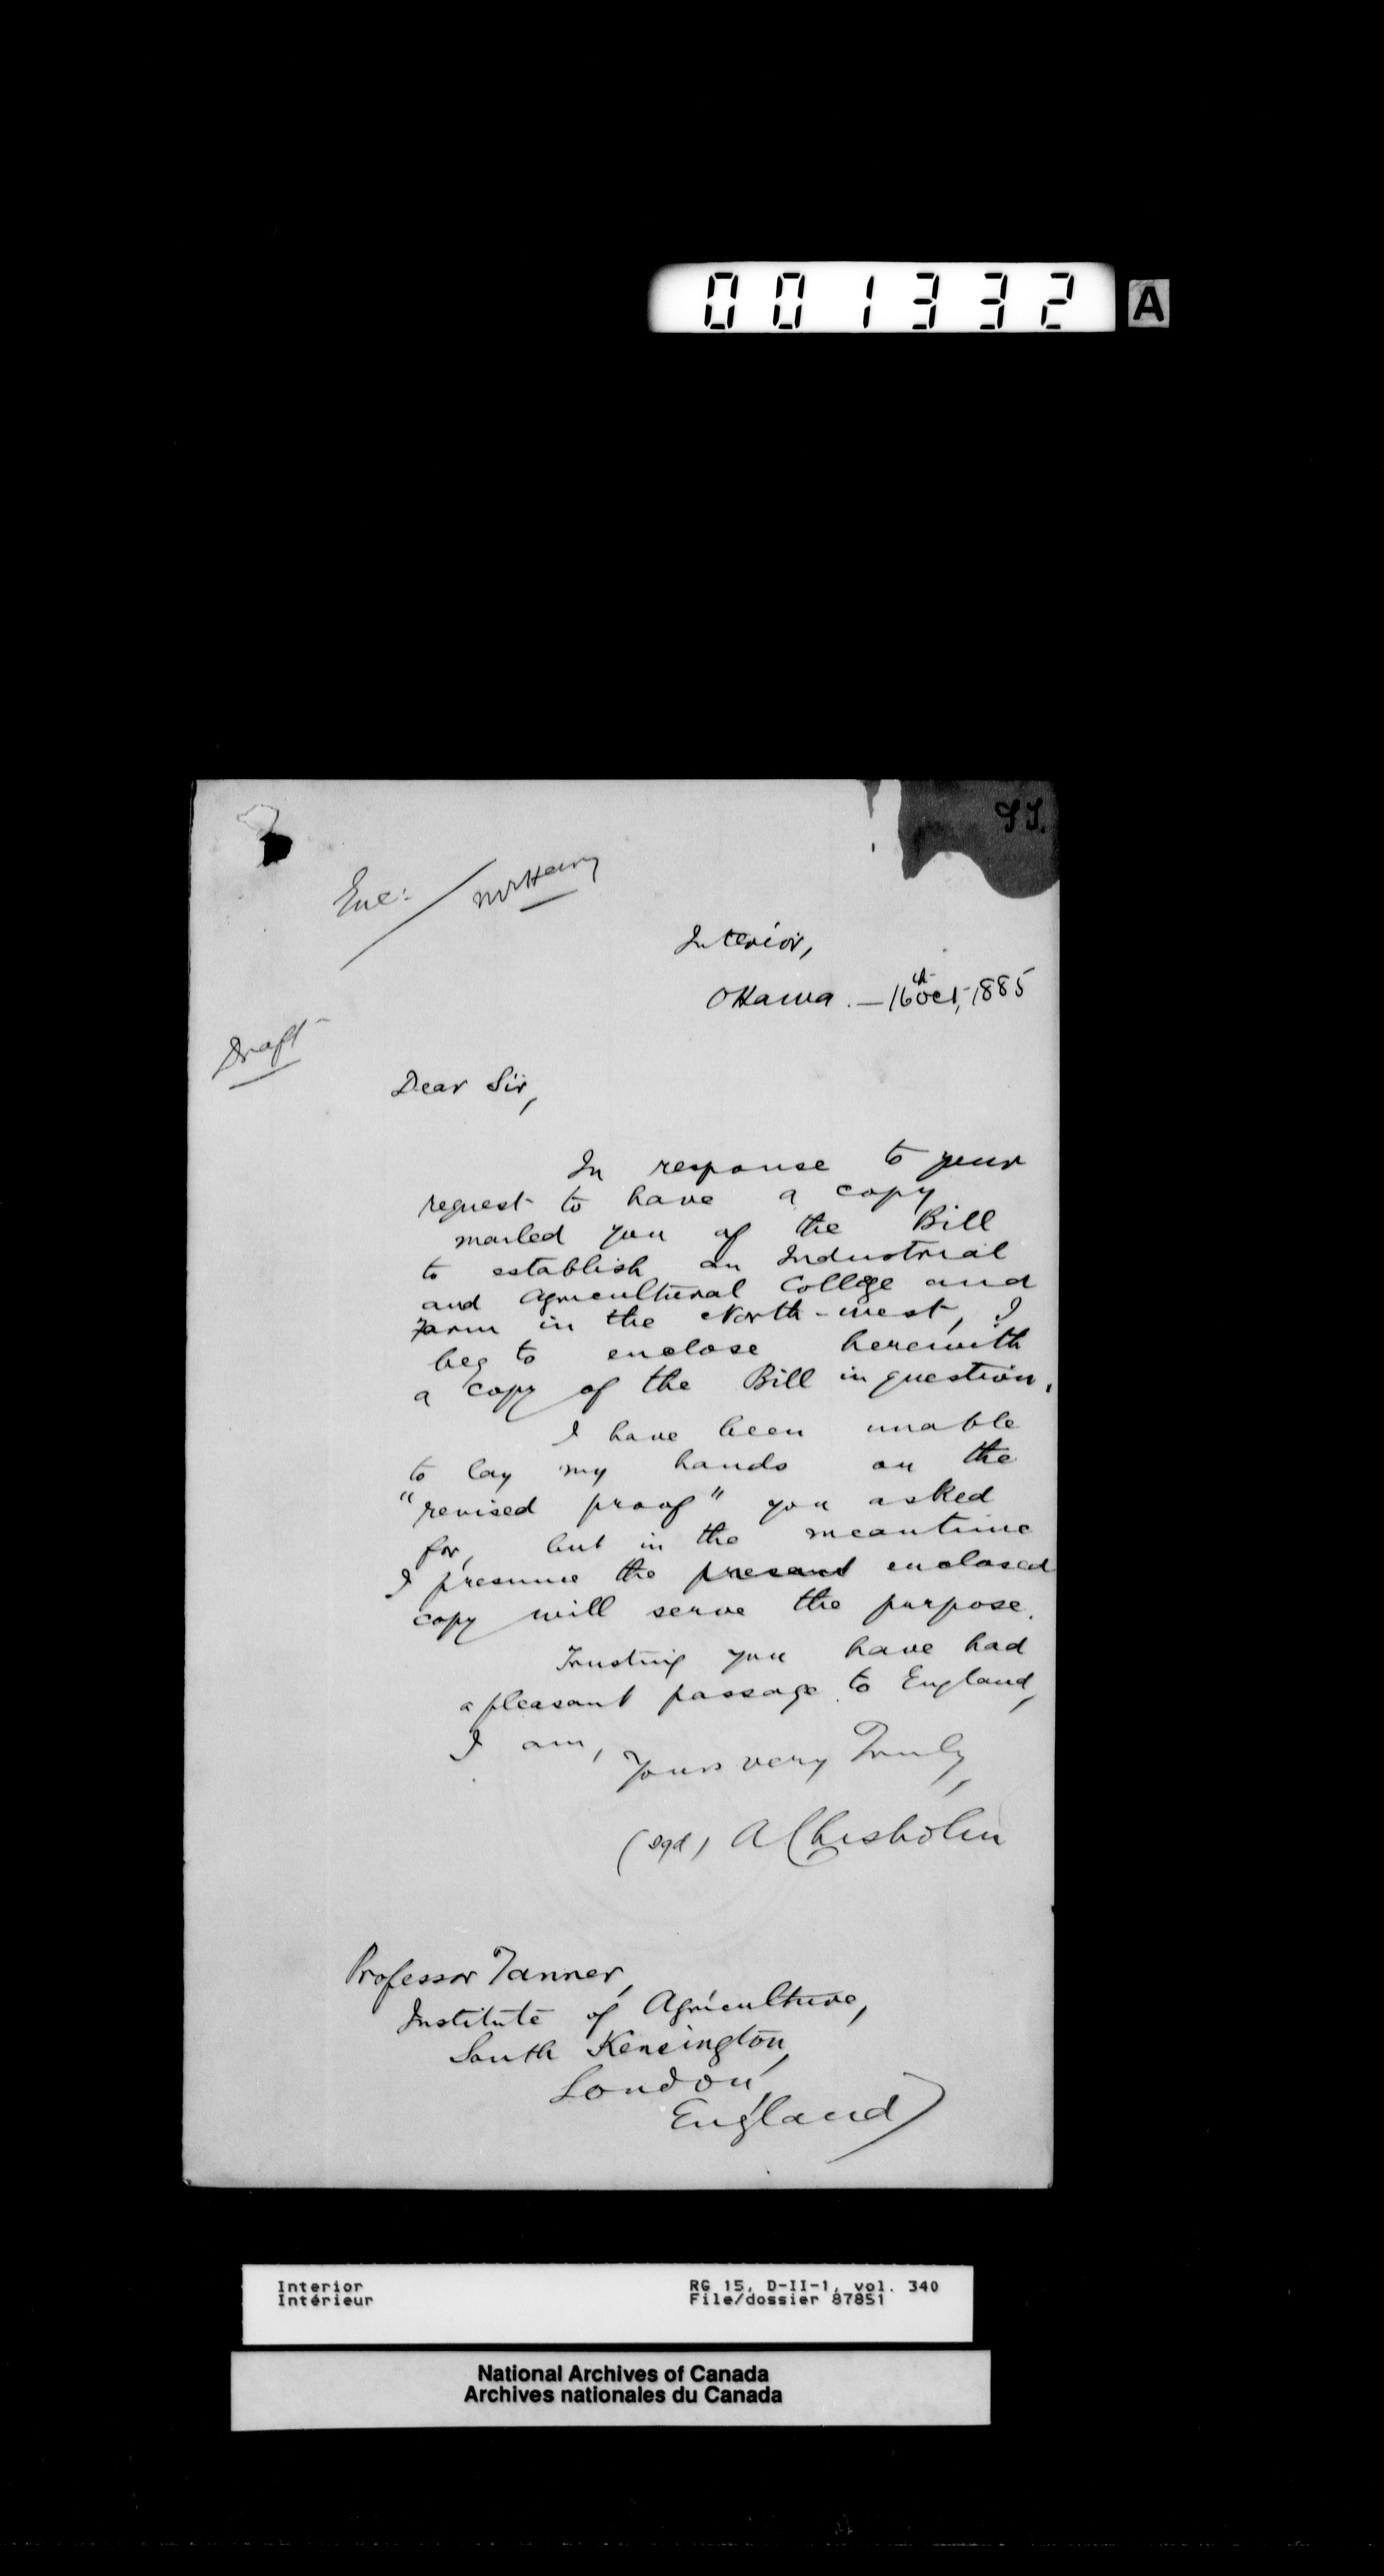 001332 A
Enc: Mr Henry
Interior,
Ottawa. — 16th Oct, 1885
Draft
Dear Sir,
In response to your
request to have a copy
mailed you of the Bill
to establish an Industrial
and Agricultural College and
Farm in the North-west, I
beg to enclose herewith
a copy of the Bill in question.
I have been unable
to lay my hands on the
"revised proof" you asked
for, but in the meantime
I presume the present enclosed
copy will serve the purpose.
Trusting you have had
a pleasant passage to England,
I am,
Yours very Truly,
(sgd) A Chisholm
Professor Tanner,
Institute of Agriculture,
South Kensington,
London,
England
Interior RG 15, D-II-1, vol. 340
Intérieur File/dossier 87851
National Archives of Canada
Archives nationales du Canada